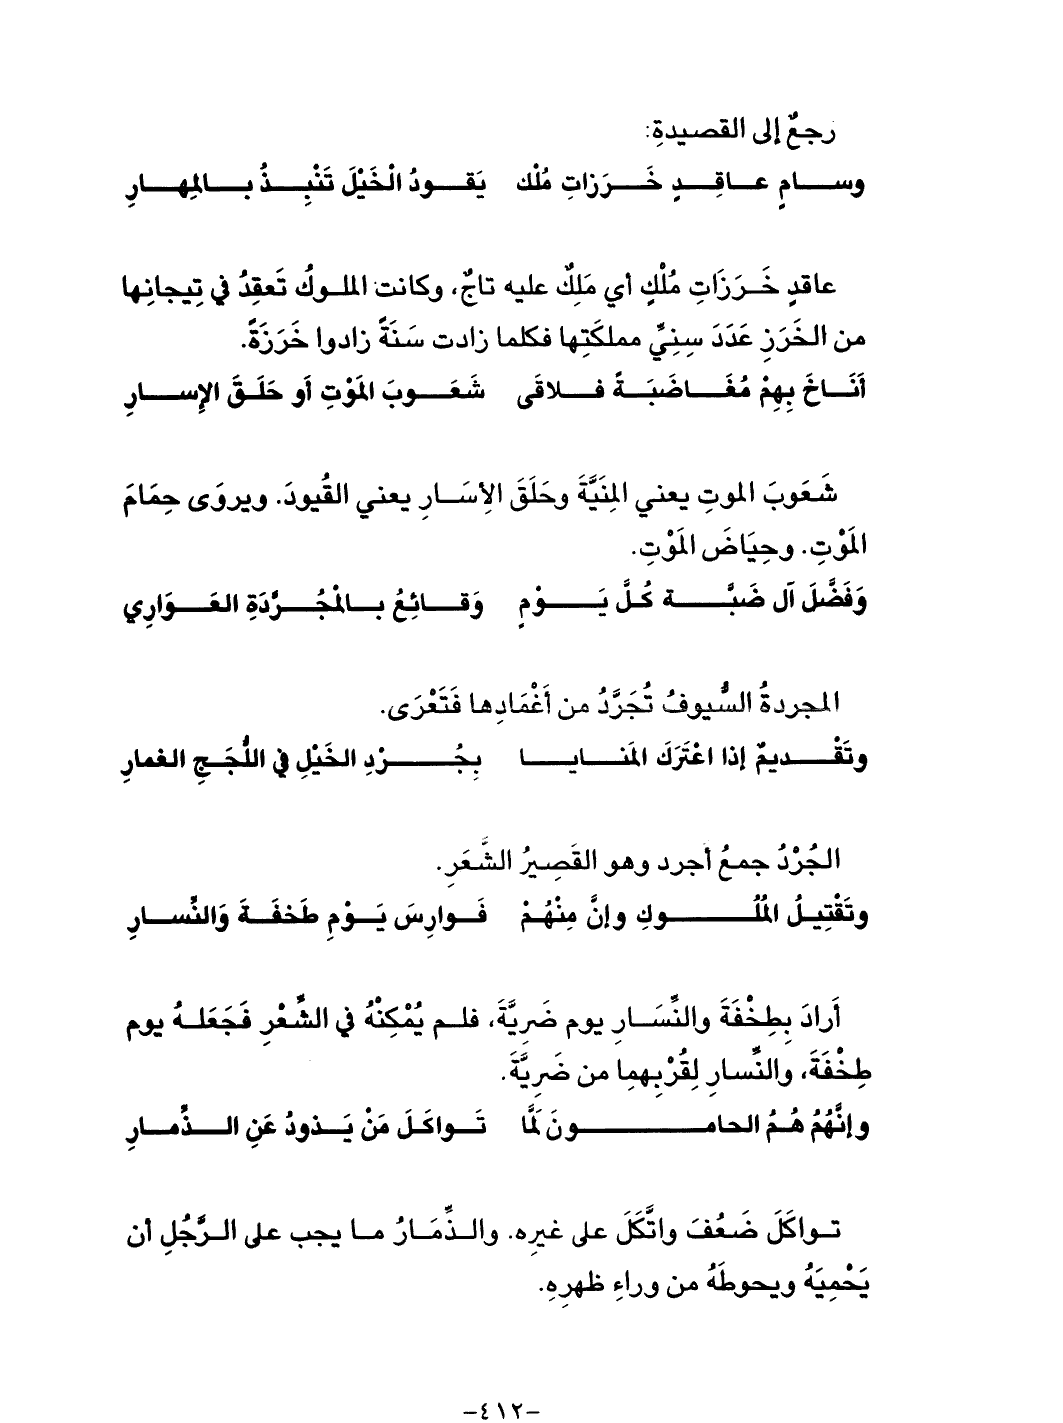 رجعٌ إلى القصيدةِ:
وسامٍ عاقِدٍ خَرَزاتِ مُلْك يَقودُ الْخَيْلَ تَنْبِذُ بالمِهارِ
عاقدٍ خَرَزَاتِ مُلْكٍ أي مَلِكٌ عليه تاجٌ، وكانت الملوكُ تَعقِدُ في تِيجانِها
من الخَرَزِ عَدَدَ سِنِيِّ مملكَتِها فكلما زادت سَنَةً زادوا خَرَزَةً.
أنَاخَ بِهِمْ مُغَاضَبَةً فلاقَى شَعَوبَ المَوْتِ أو حَلَقَ الإِسارِ
شَعَوبَ الموتِ يعني المِنيَّةَ وحَلَقَ الاِسَارِ يعني القُيودَ. ويروَى حِمَامَ
المَوْتِ. وحِيَاضَ المَوْتِ.
وَفَضَّلَ آل ضَبَّة كُلَّ يَوْمٍ وَقائِعُ بالْمُجُرَّدَةِ العَوَارِي
المجردةُ السُّيوفُ تُجَرَّدُ من أغْمَادِها فَتَعْرَى.
وتَقْديمٌ إذا اعْتَرَكَ المَنايا بِجُرْدِ الخَيْلِ في اللُّجَجِ الغمارِ
الجُرْدُ جمعُ أجرد وهو القَصِيرُ الشَّعَرِ.
وتَقْتِيلُ المُلُوكِ وإنَّ مِنْهُمْ فَوارِسَ يَوْمِ طَخفَةَ وَالنِّسارِ
أَرادَ بِطِخْفَةَ والنِّسَارِ يوم ضَرِيَّةَ، فلم يُمْكِنْهُ في الشِّعْرِ فَجَعَلهُ يوم
طِخْفَةَ، والنِّسارِ لِقُرْبِهِما من ضَرِيَّةَ.
وإنَّهُمُ هُمُ الحامونَ لَمَّا تَواكَلَ مَنْ يَذودُ عَنِ الذِّمارِ
تواكَلَ ضَعُفَ واتَّكَلَ على غيرِه. والذِّمَارُ ما يجب على الرَّجُلِ أن
يَحْمِيَهُ ويحوطَهُ من وراءِ ظهرِهِ.
-٤١٢-